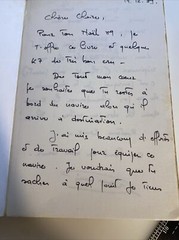 Chère Claire,
Pour ton Noël 89, je
t'offre ce livre et quelques
de très bon cru -
De tout mon cœur
je souhaite que tu restes à
bord du navire alors qu'il
arrive à destination.
J'ai mis beaucoup d'efforts
et de travail pour équiper ce
navire. Je voudrais que tu
saches à quel point je tiens